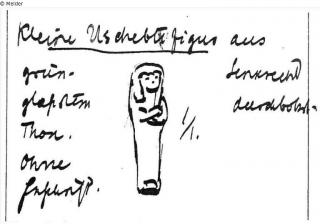 © Melder
Kleine Uschebtifigur aus
grün-
glasirtem
Thon.
Ohne
Inschrift.
1/1.
Senkrecht
durchbohrt.